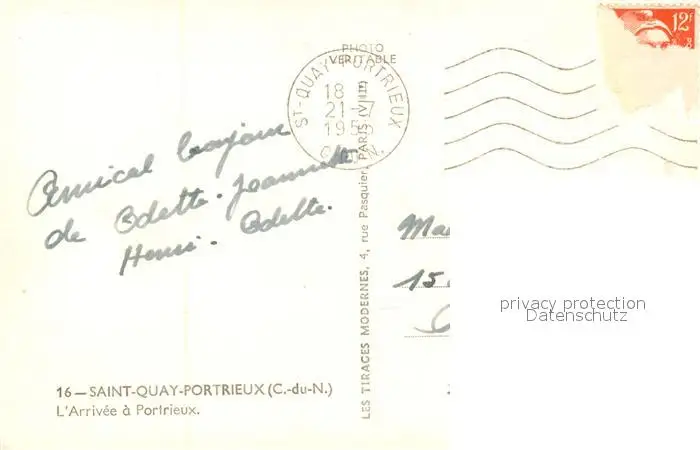 PHOTO
VERITABLE
ST-QUAY-PORTRIEUX
18 H
21-7
1955
C. DU N.
12F
Amical bonjour
de Odette. Jeannette
Henri. Odette.
LES TIRAGES MODERNES, 4, rue Pasquier, PARIS (VIIIe)
15
privacy protection
Datenschutz
16 — SAINT-QUAY-PORTRIEUX (C.-du-N.)
L'Arrivée à Portrieux.